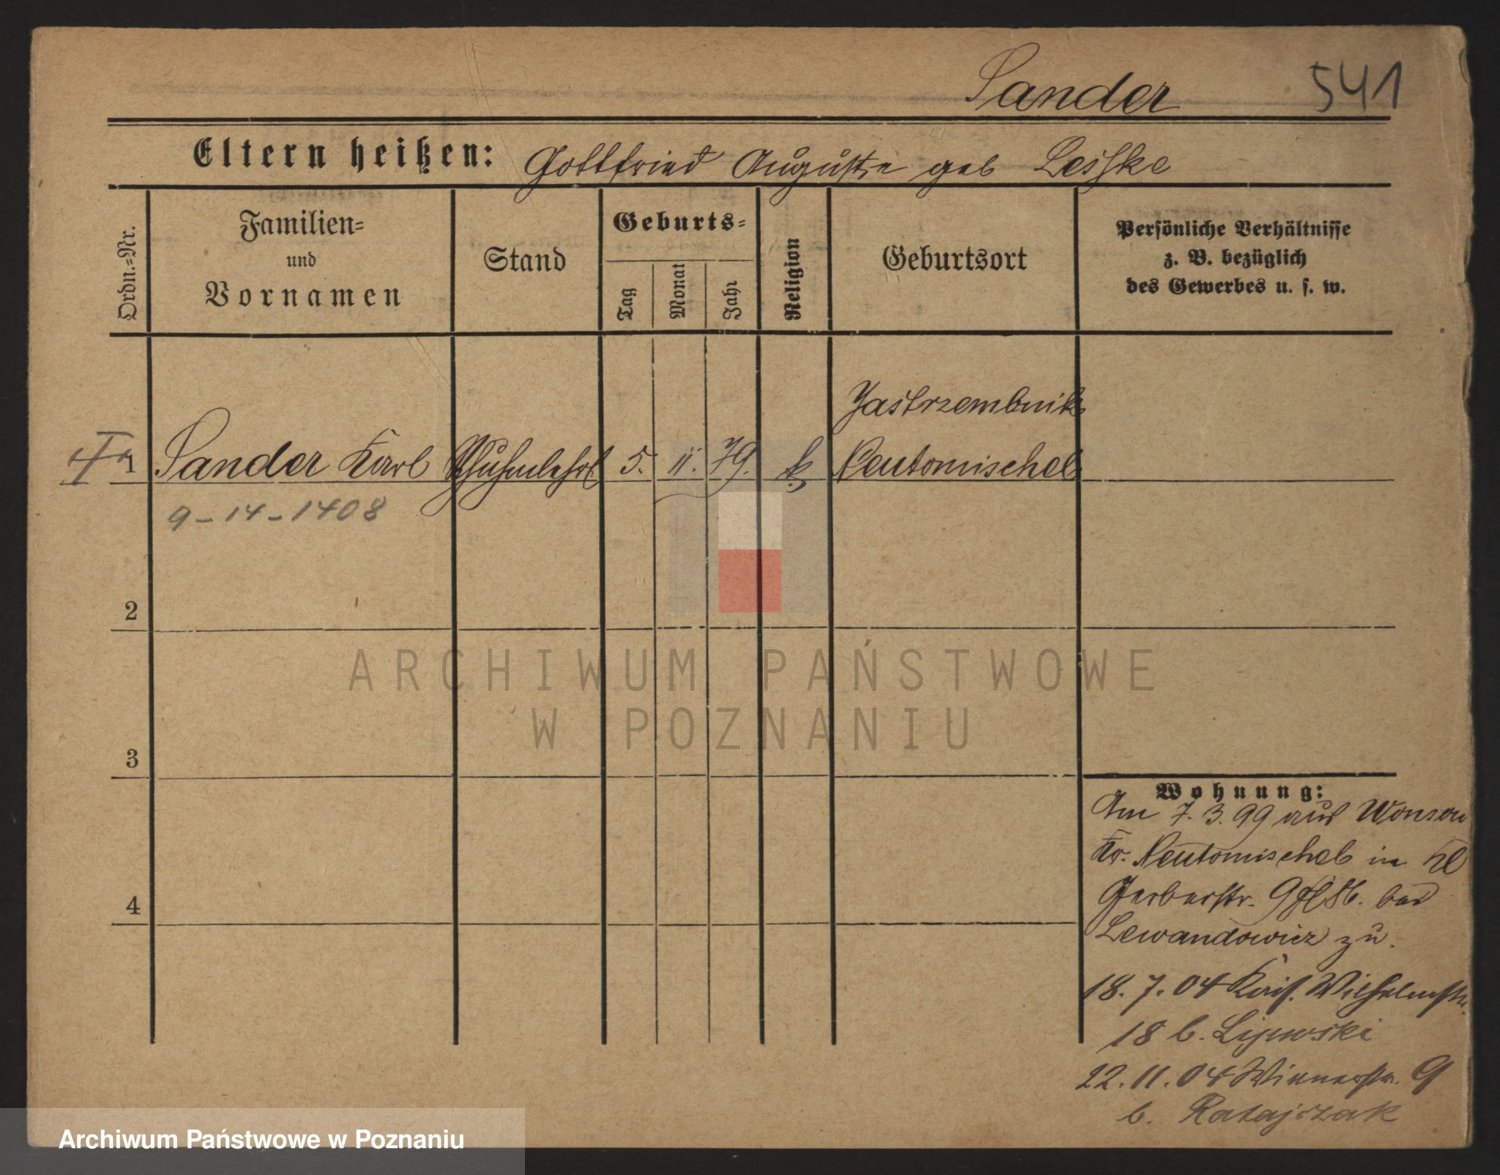 Sander 541
Eltern heißen: Gottfried Auguste geb Leske
Ordn.-Nr.
Familien-
und
Vornamen
Stand
Geburts-
Tag
Monat
Jahr
Religion
Geburtsort
Persönliche Verhältnisse
z. B. bezüglich
des Gewerbes u. s. w.
Jastrzembnik
1 Sander Karl 5. 11. 79. k. Neutomischel
9-14-1408
2
ARCHIWUM PAŃSTWOWE
W POZNANIU
3
Wohnung:
Am 7.3.99 aus Wonsowo
Kr. Neutomischel in Kl
Gerberstr. 9 bei
Lewandowicz zu.
18.7.04 Kais. Wilhelmstr.
18 b. Lijewski
22.11.04 Wienerstr. 9
b. Ratajczak
4
Archiwum Państwowe w Poznaniu